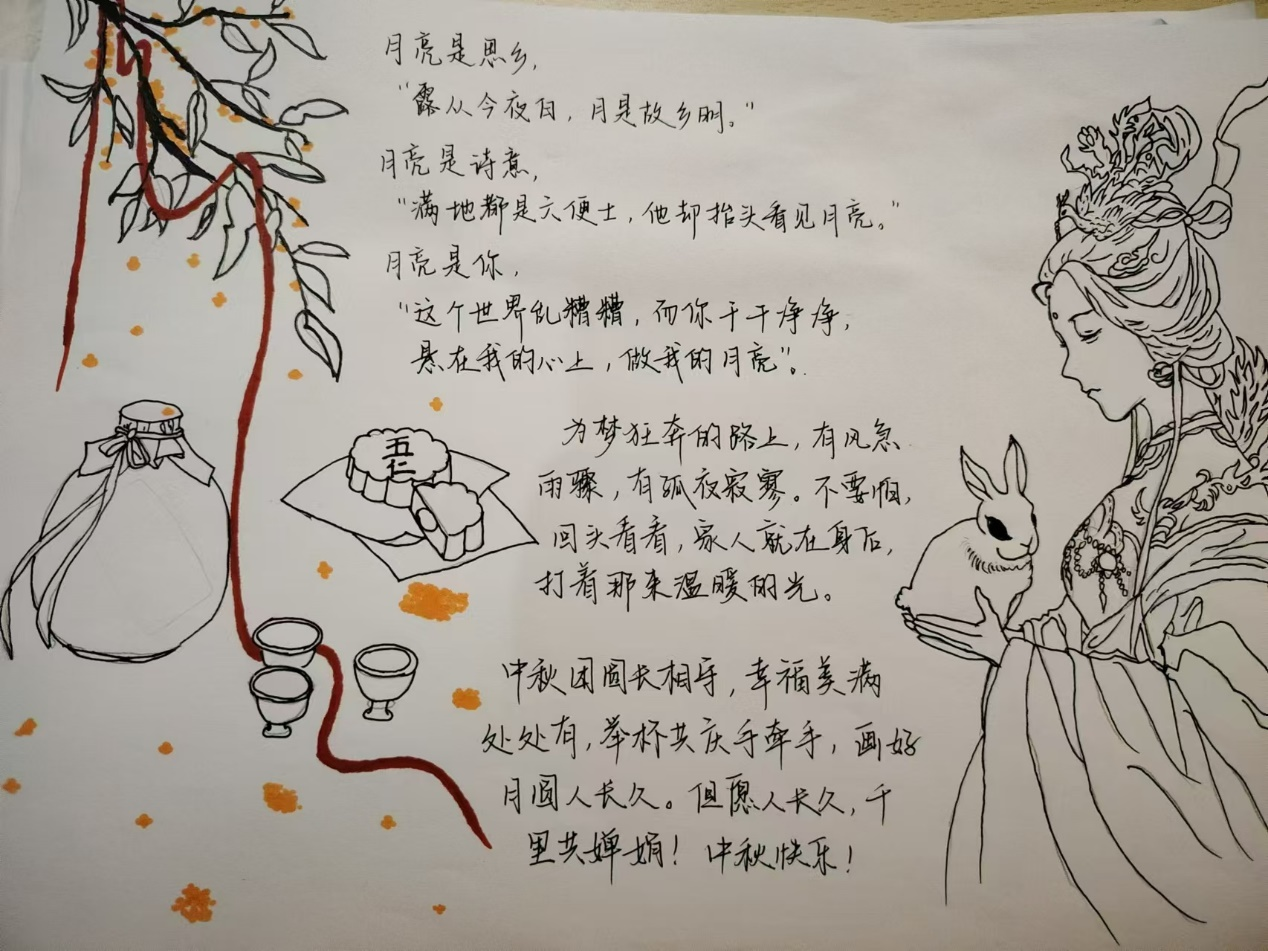 月亮是思乡,
"露从今夜白,月是故乡明。"
月亮是诗意,
"满地都是六便士,他却抬头看见月亮。"
月亮是你,
"这个世界乱糟糟,而你干干净净,
悬在我的心上,做我的月亮"。
五
仁
为梦狂奔的路上,有风急
雨骤,有孤夜寂寥。不要怕,
回头看看,家人就在身后,
打着那束温暖的光。
中秋团圆长相守,幸福美满
处处有,举杯共庆手牵手,画好
月圆人长久。但愿人长久,千
里共婵娟!中秋快乐!